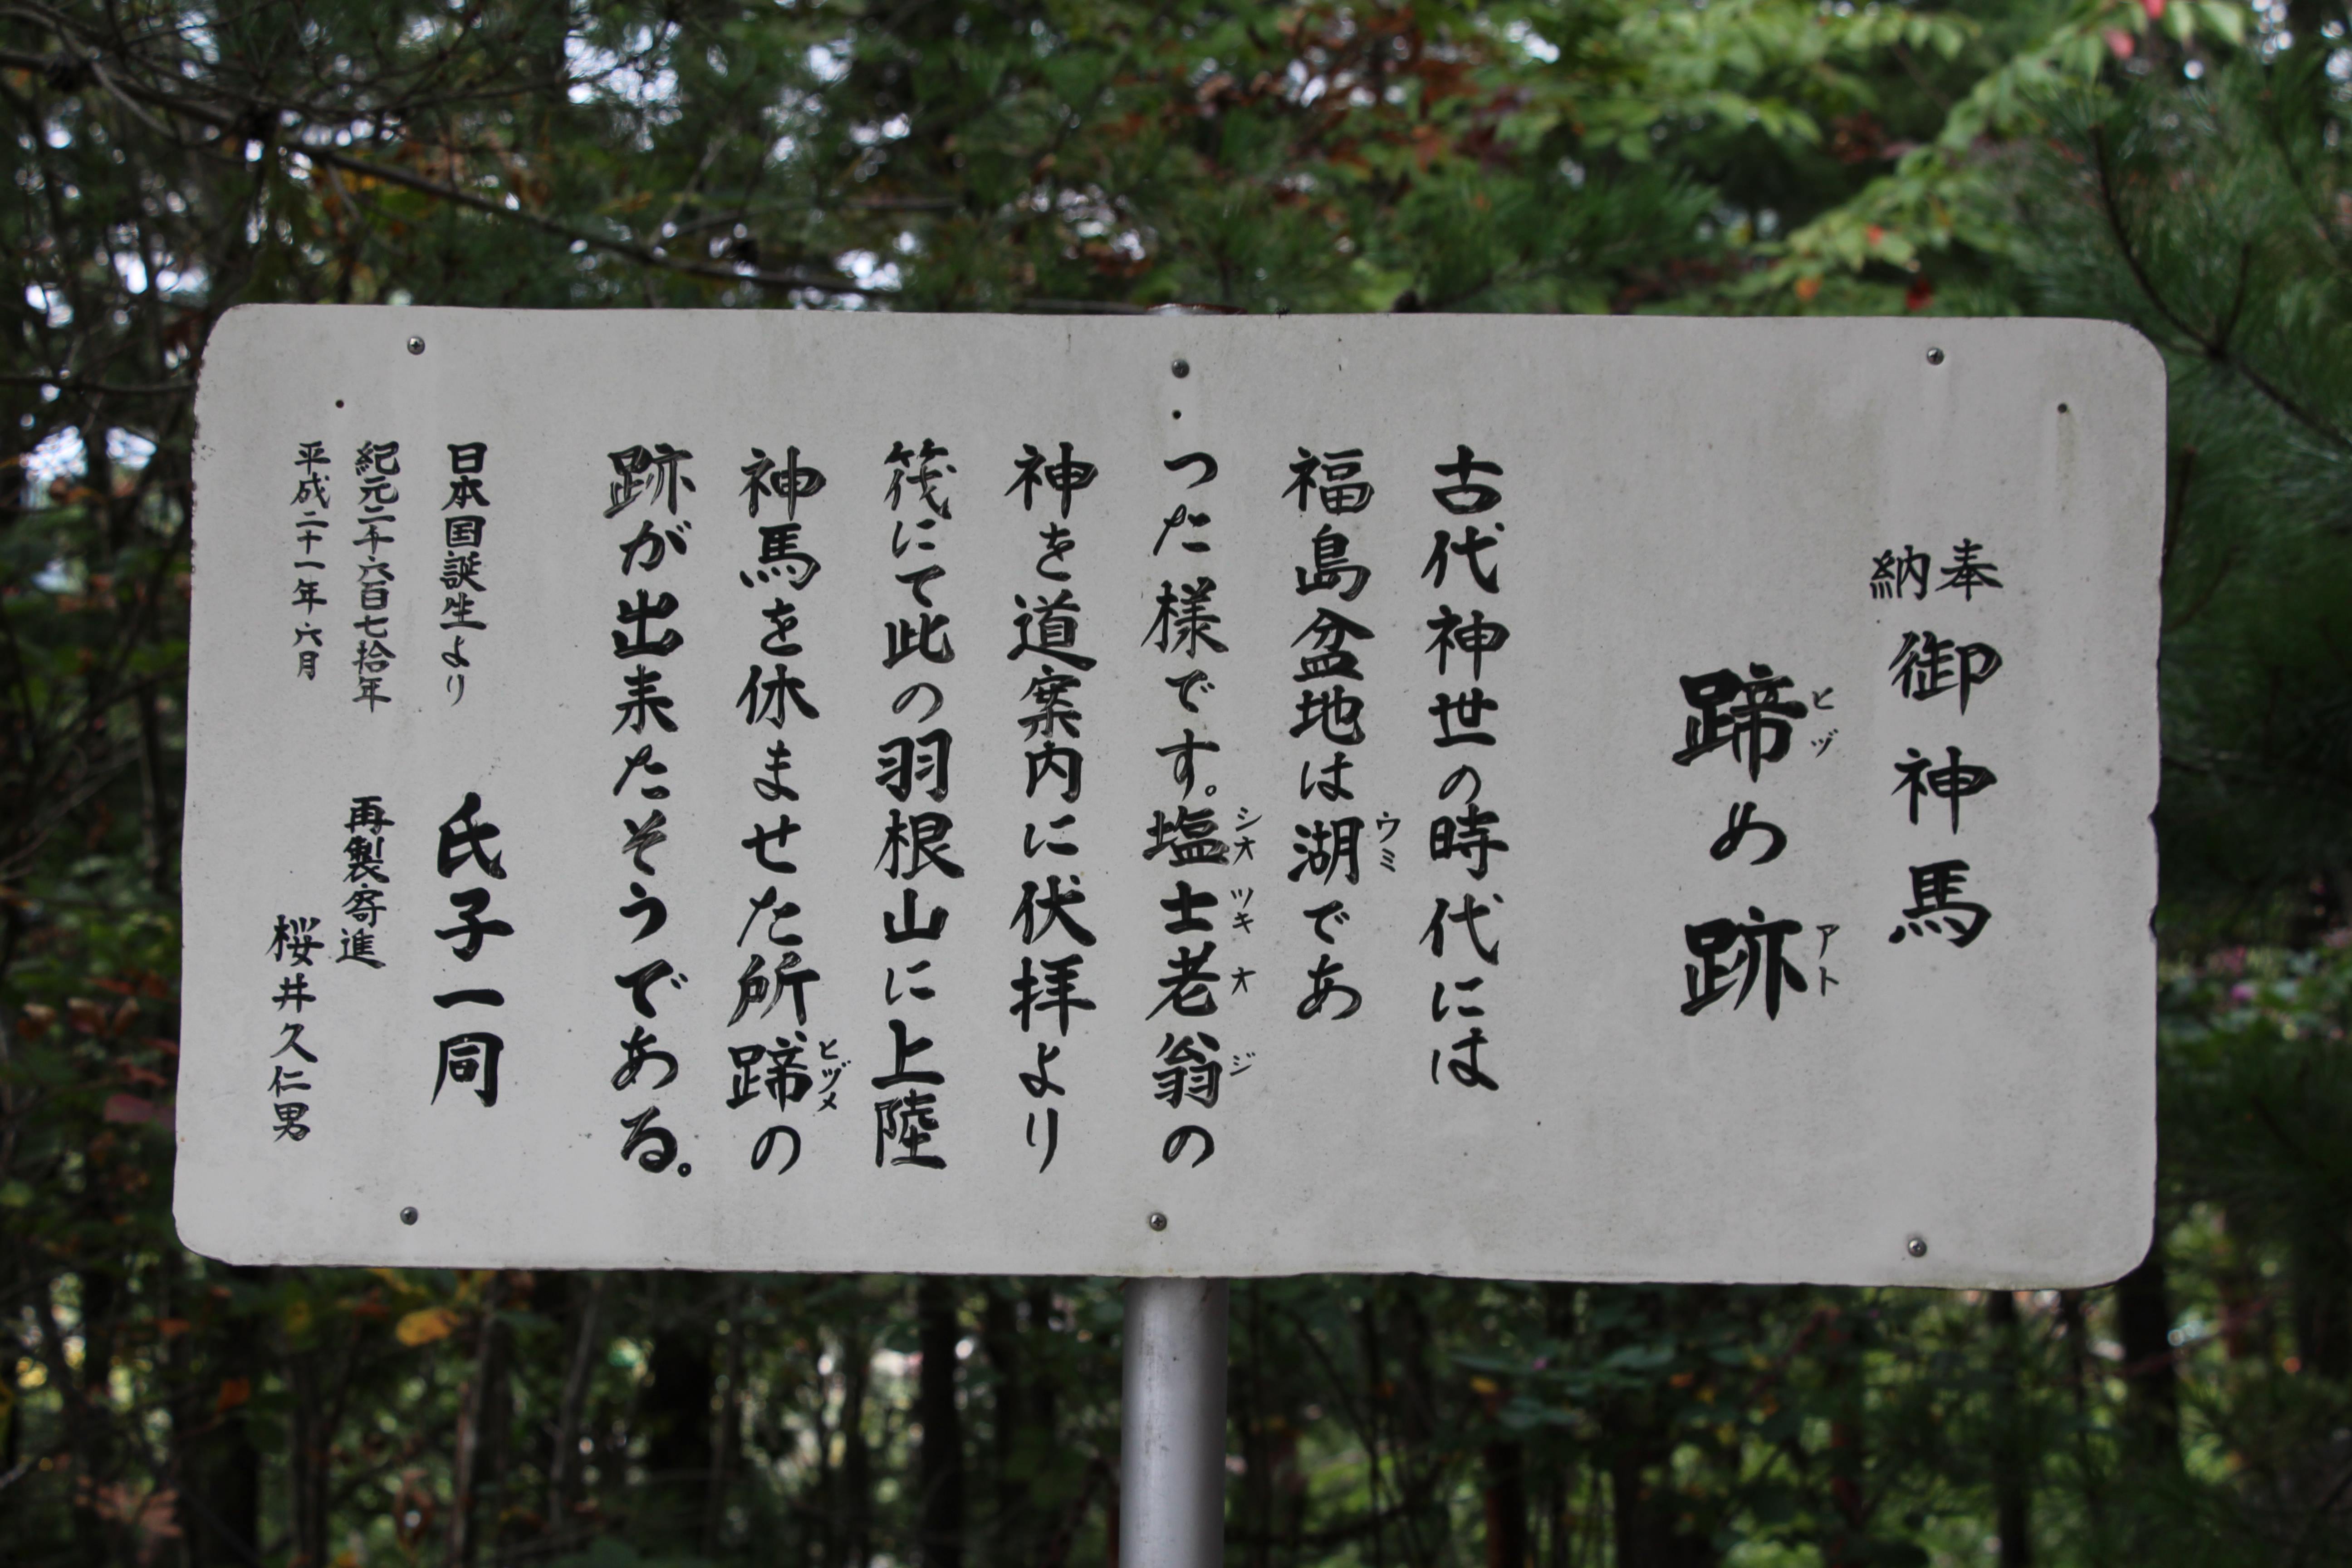 奉納 御神馬
蹄め跡
ヒヅ アト
古代神世の時代には
福島盆地は湖であ
ウミ
つた様です。塩士老翁の
シオツキオジ
神を道案内に伏拝より
筏にて此の羽根山に上陸
神馬を休ませた所蹄の
ヒヅメ
跡が出来たそうである。
日本国誕生より 氏子一同
紀元二千六百七拾年 再製寄進
平成二十一年六月 桜井久仁男